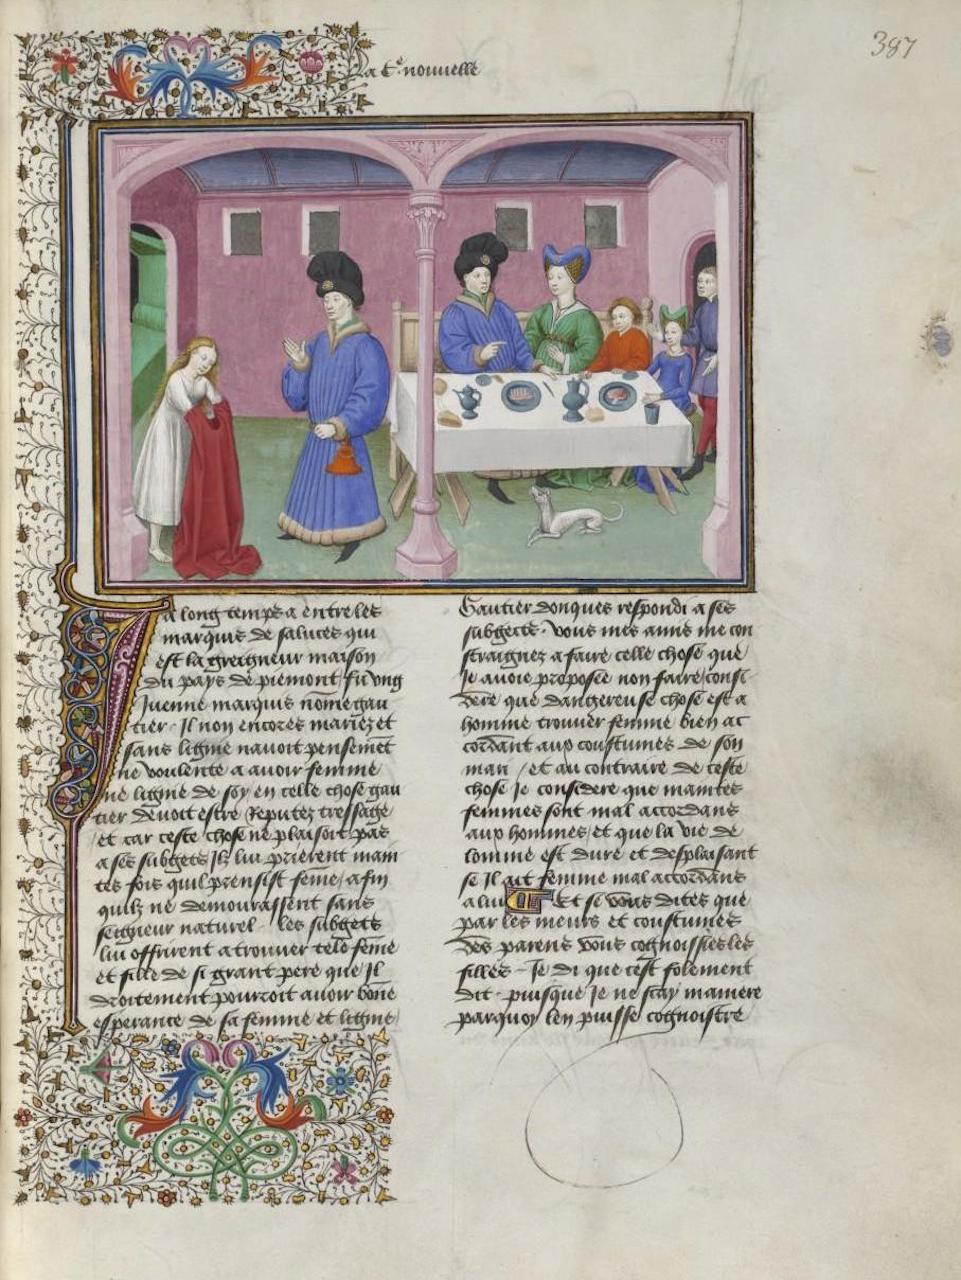 387
La C.e nouuelle
Ja long temps a entre les
marquis de saluces qui
est la greigneur maison
du pays de piemont fu vng
Juenne marquis nōme gau
tier. Il non encores mariez et
sans ligine nauoit pensemēt
ne voulente a auoir femme
ne ligine de soy en celle chose gau
tier deuoit estre Reputez tressage
et car ceste chose ne plaisoit pas
a ses subgets Ilz lui prierent main
tes fois quil prensist feme / afin
quilz ne demourassent sans
seigneur naturel. les subgets
lui offrirent a trouuer tele feme
et fille de si grant pere que Il
droitement pourroit auoir bōne
esperance de sa femme et ligine
Gautier donques respondi a ses
subgects. vous mes amis me con
straignez a faire celle chose que
Je auoie proposee non faire / consi
dere que dangereuse chose est a
homme trouuer femme bien ac
cordant aux coustumes de son
mari / et au contraire de ceste
chose Je considere que maintes
femmes sont mal accordans
aux hommes / et que la vie de
lomme est dure et desplaisant
se Il ait femme mal accordans
a lui Et se vous dites que
par les meurs et coustumes
des parens vous cognoissies les
filles - Je di que cest folement
dit. puisque Je ne scay maniere
parquoy len puisse cognoistre